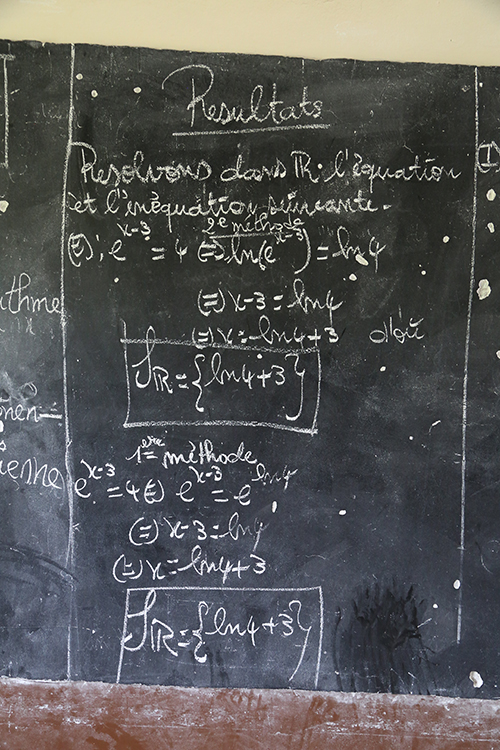 Resultats
Resolvons dans ℝ. l'équation
et l'inéquation suivante.
2e méthode
(E): e^(x-3) = 4 (=) ln(e^(x-3)) = ln4
(=) x-3 = ln4
(=) x = ln4+3 d'où
Sℝ = {ln4+3}
1ère méthode
e^(x-3) = 4 (=) e^(x-3) = e^(ln4)
(=) x-3 = ln4
(=) x = ln4+3
Sℝ = {ln4+3}
ithme
nen-
ième
(I)